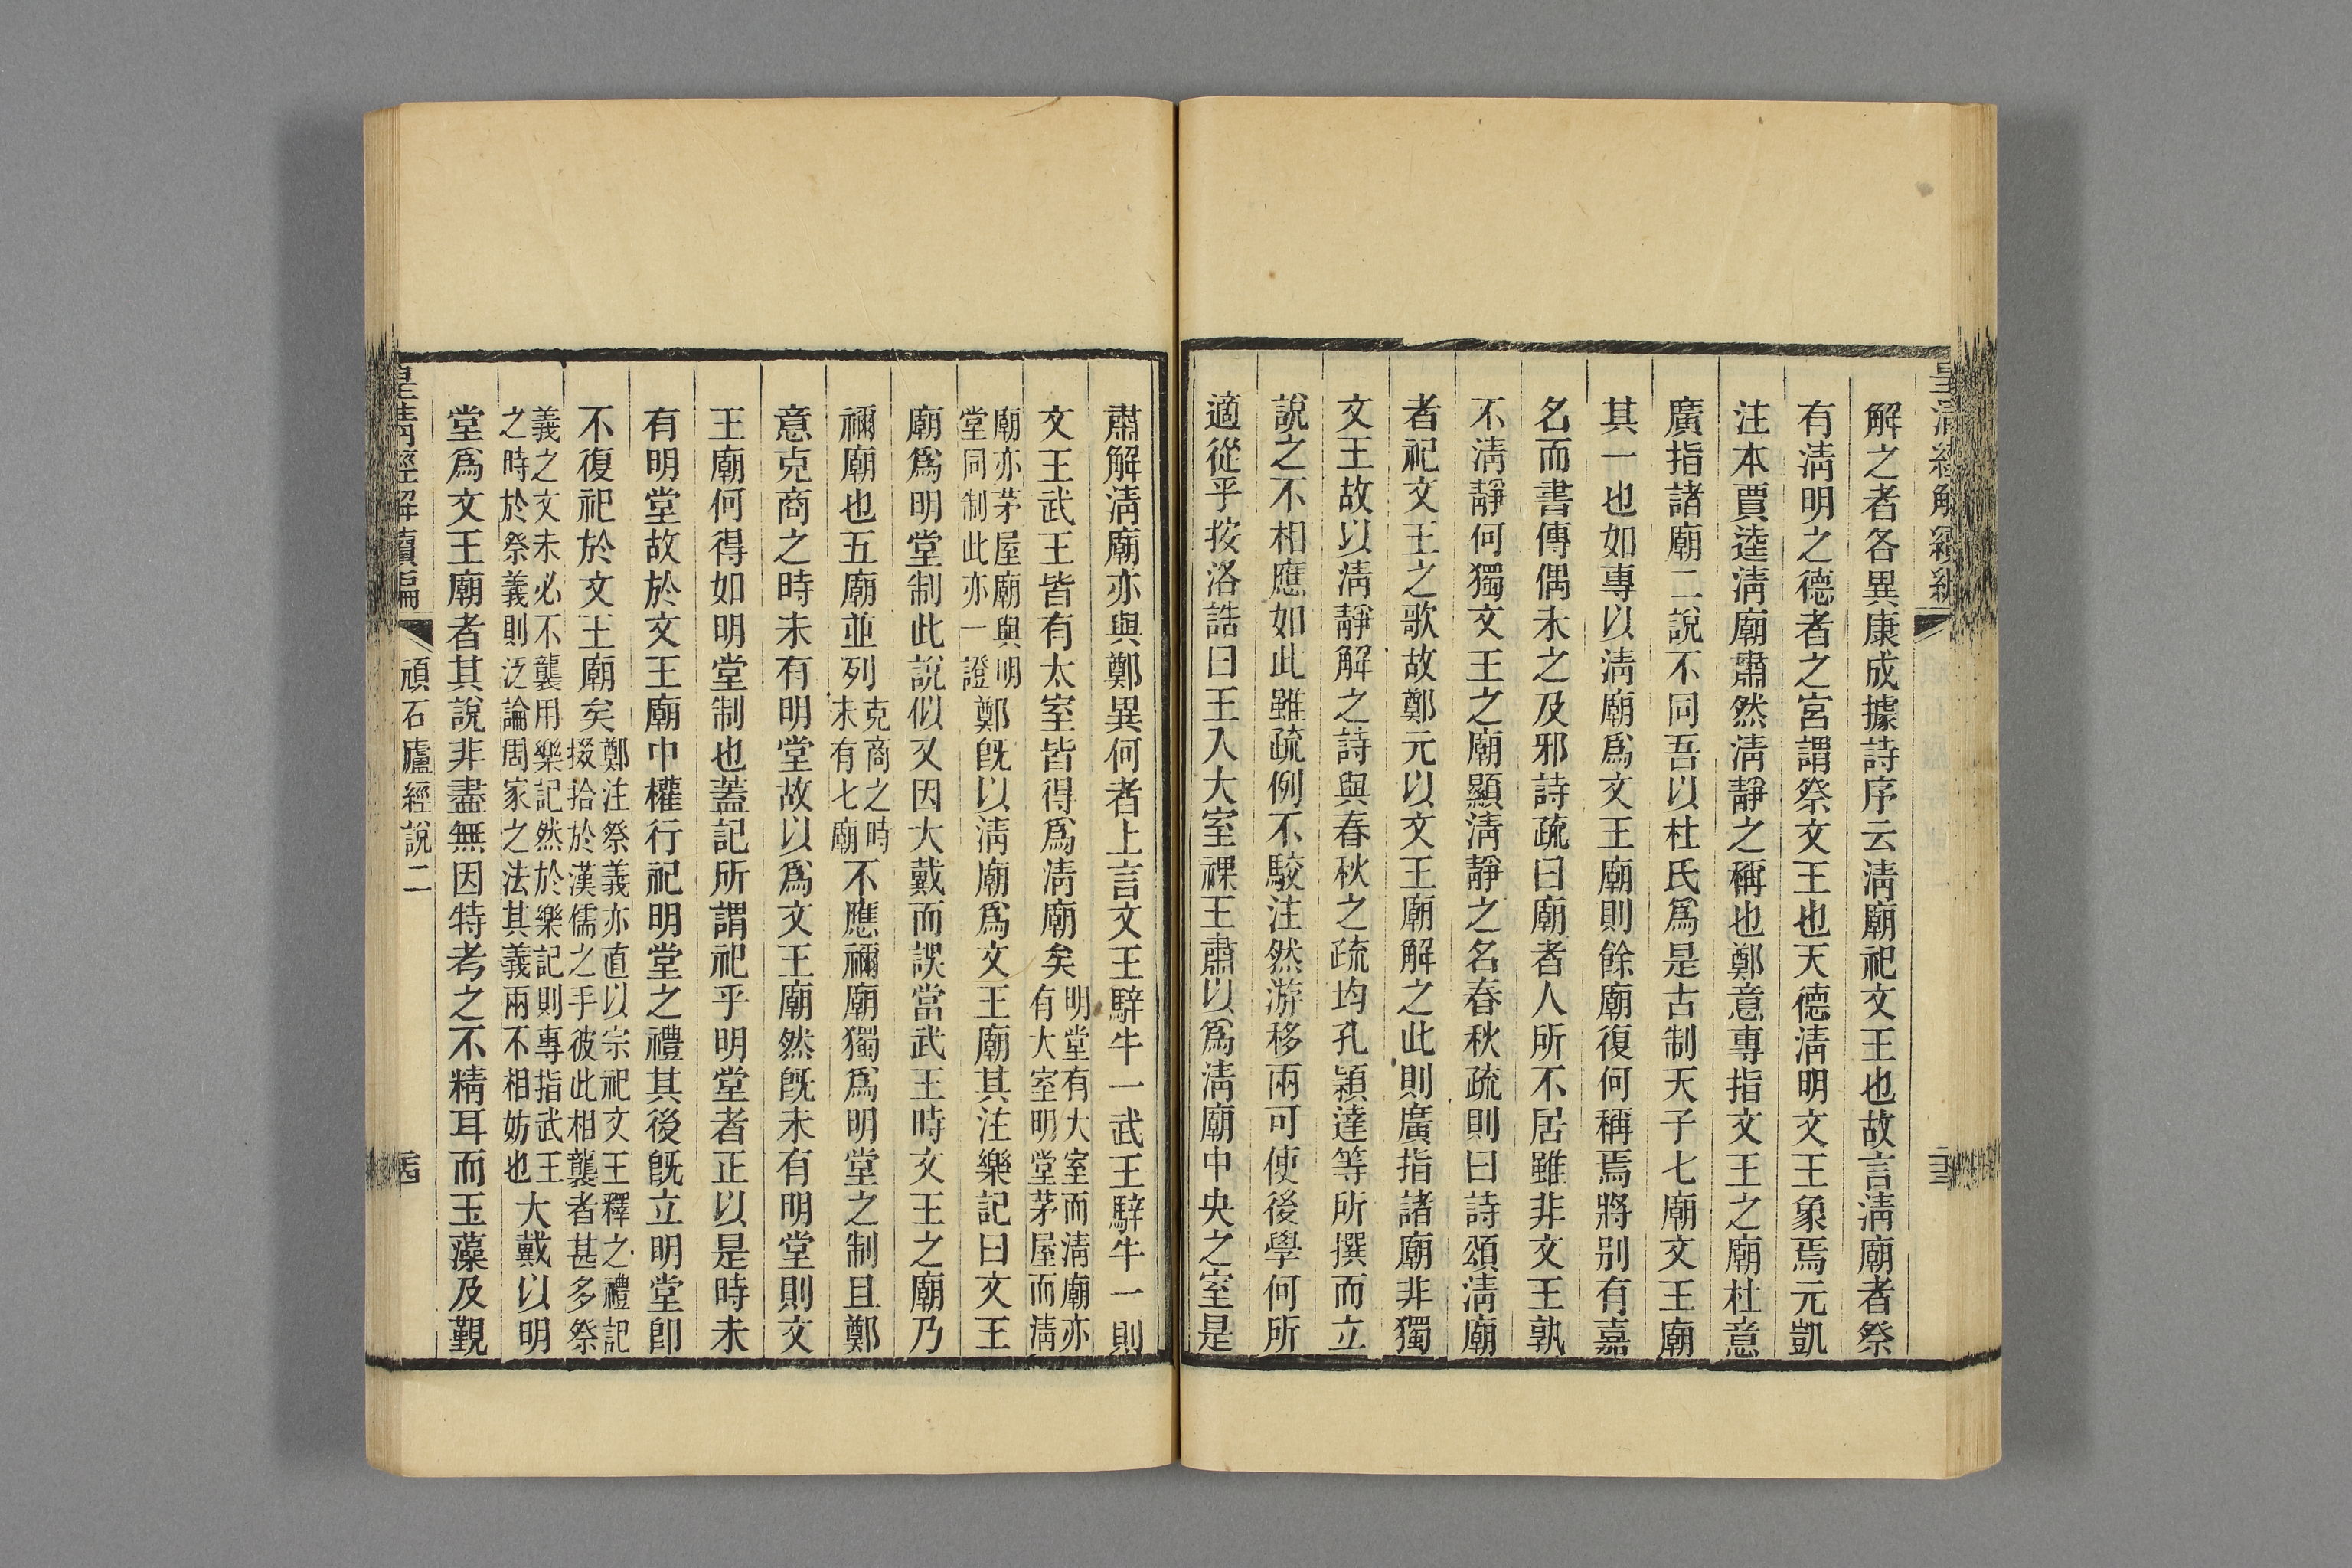 皇清經解續編
解之者各異康成據詩序云淸廟祀文王也故言淸廟者祭
有淸明之德者之宮謂祭文王也天德淸明文王象焉元凱
注本賈逵淸廟肅然淸靜之稱也鄭意專指文王之廟杜意
廣指諸廟二說不同吾以杜氏爲是古制天子七廟文王廟
其一也如專以淸廟爲文王廟則餘廟復何稱焉將別有嘉
名而書傳偶未之及邪詩疏曰廟者人所不居雖非文王孰
不淸靜何獨文王之廟顯淸靜之名春秋疏則曰詩頌淸廟
者祀文王之歌故鄭元以文王廟解之此則廣指諸廟非獨
文王故以淸靜解之詩與春秋之疏均孔穎達等所撰而立
說之不相應如此雖疏例不駮注然游移兩可使後學何所
適從乎按洛誥曰王入大室祼王肅以爲淸廟中央之室是
肅解淸廟亦與鄭異何者上言文王騂牛一武王騂牛一則
文王武王皆有太室皆得爲淸廟矣明堂有大室而淸廟亦
有大室明堂茅屋而淸
廟亦茅屋廟與明
堂同制此亦一證鄭旣以淸廟爲文王廟其注樂記曰文王
廟爲明堂制此說似又因大戴而誤當武王時文王之廟乃
禰廟也五廟並列克商之時
未有七廟不應禰廟獨爲明堂之制且鄭
意克商之時未有明堂故以爲文王廟然旣未有明堂則文
王廟何得如明堂制也蓋記所謂祀乎明堂者正以是時未
有明堂故於文王廟中權行祀明堂之禮其後旣立明堂卽
不復祀於文王廟矣鄭注祭義亦直以宗祀文王釋之禮記
掇拾於漢儒之手彼此相襲者甚多祭
義之文未必不襲用樂記然於樂記則專指武王
之時於祭義則泛論周家之法其義兩不相妨也大戴以明
堂爲文王廟者其說非盡無因特考之不精耳而玉藻及覲
皇淸經解續編
頑石廬經說二